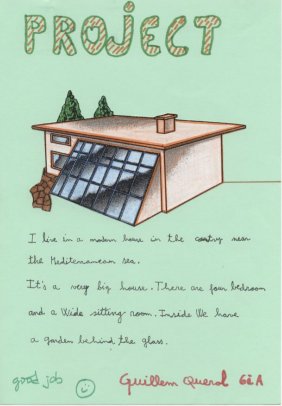 PROJECT
I live in a modern house in the country near
the Mediterranean sea.
It's a very big house. There are four bedroom
and a wide sitting room. Inside We have
a garden behind the glass.
good job
Guillem Querol 6è A